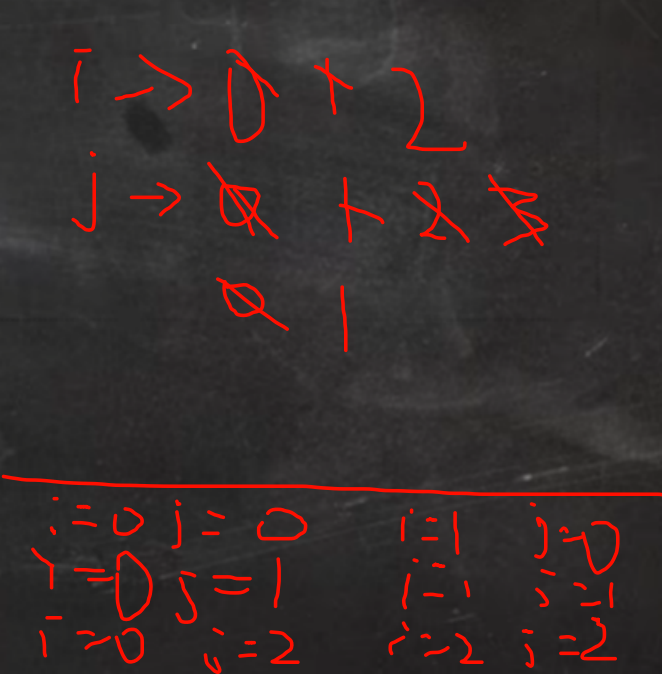 i → 0 1 2
j → 0 1 2 3
0 1
i=0 j=0 i=1 j=0
i=0 j=1 i=1 j=1
i=0 j=2 i=2 j=2